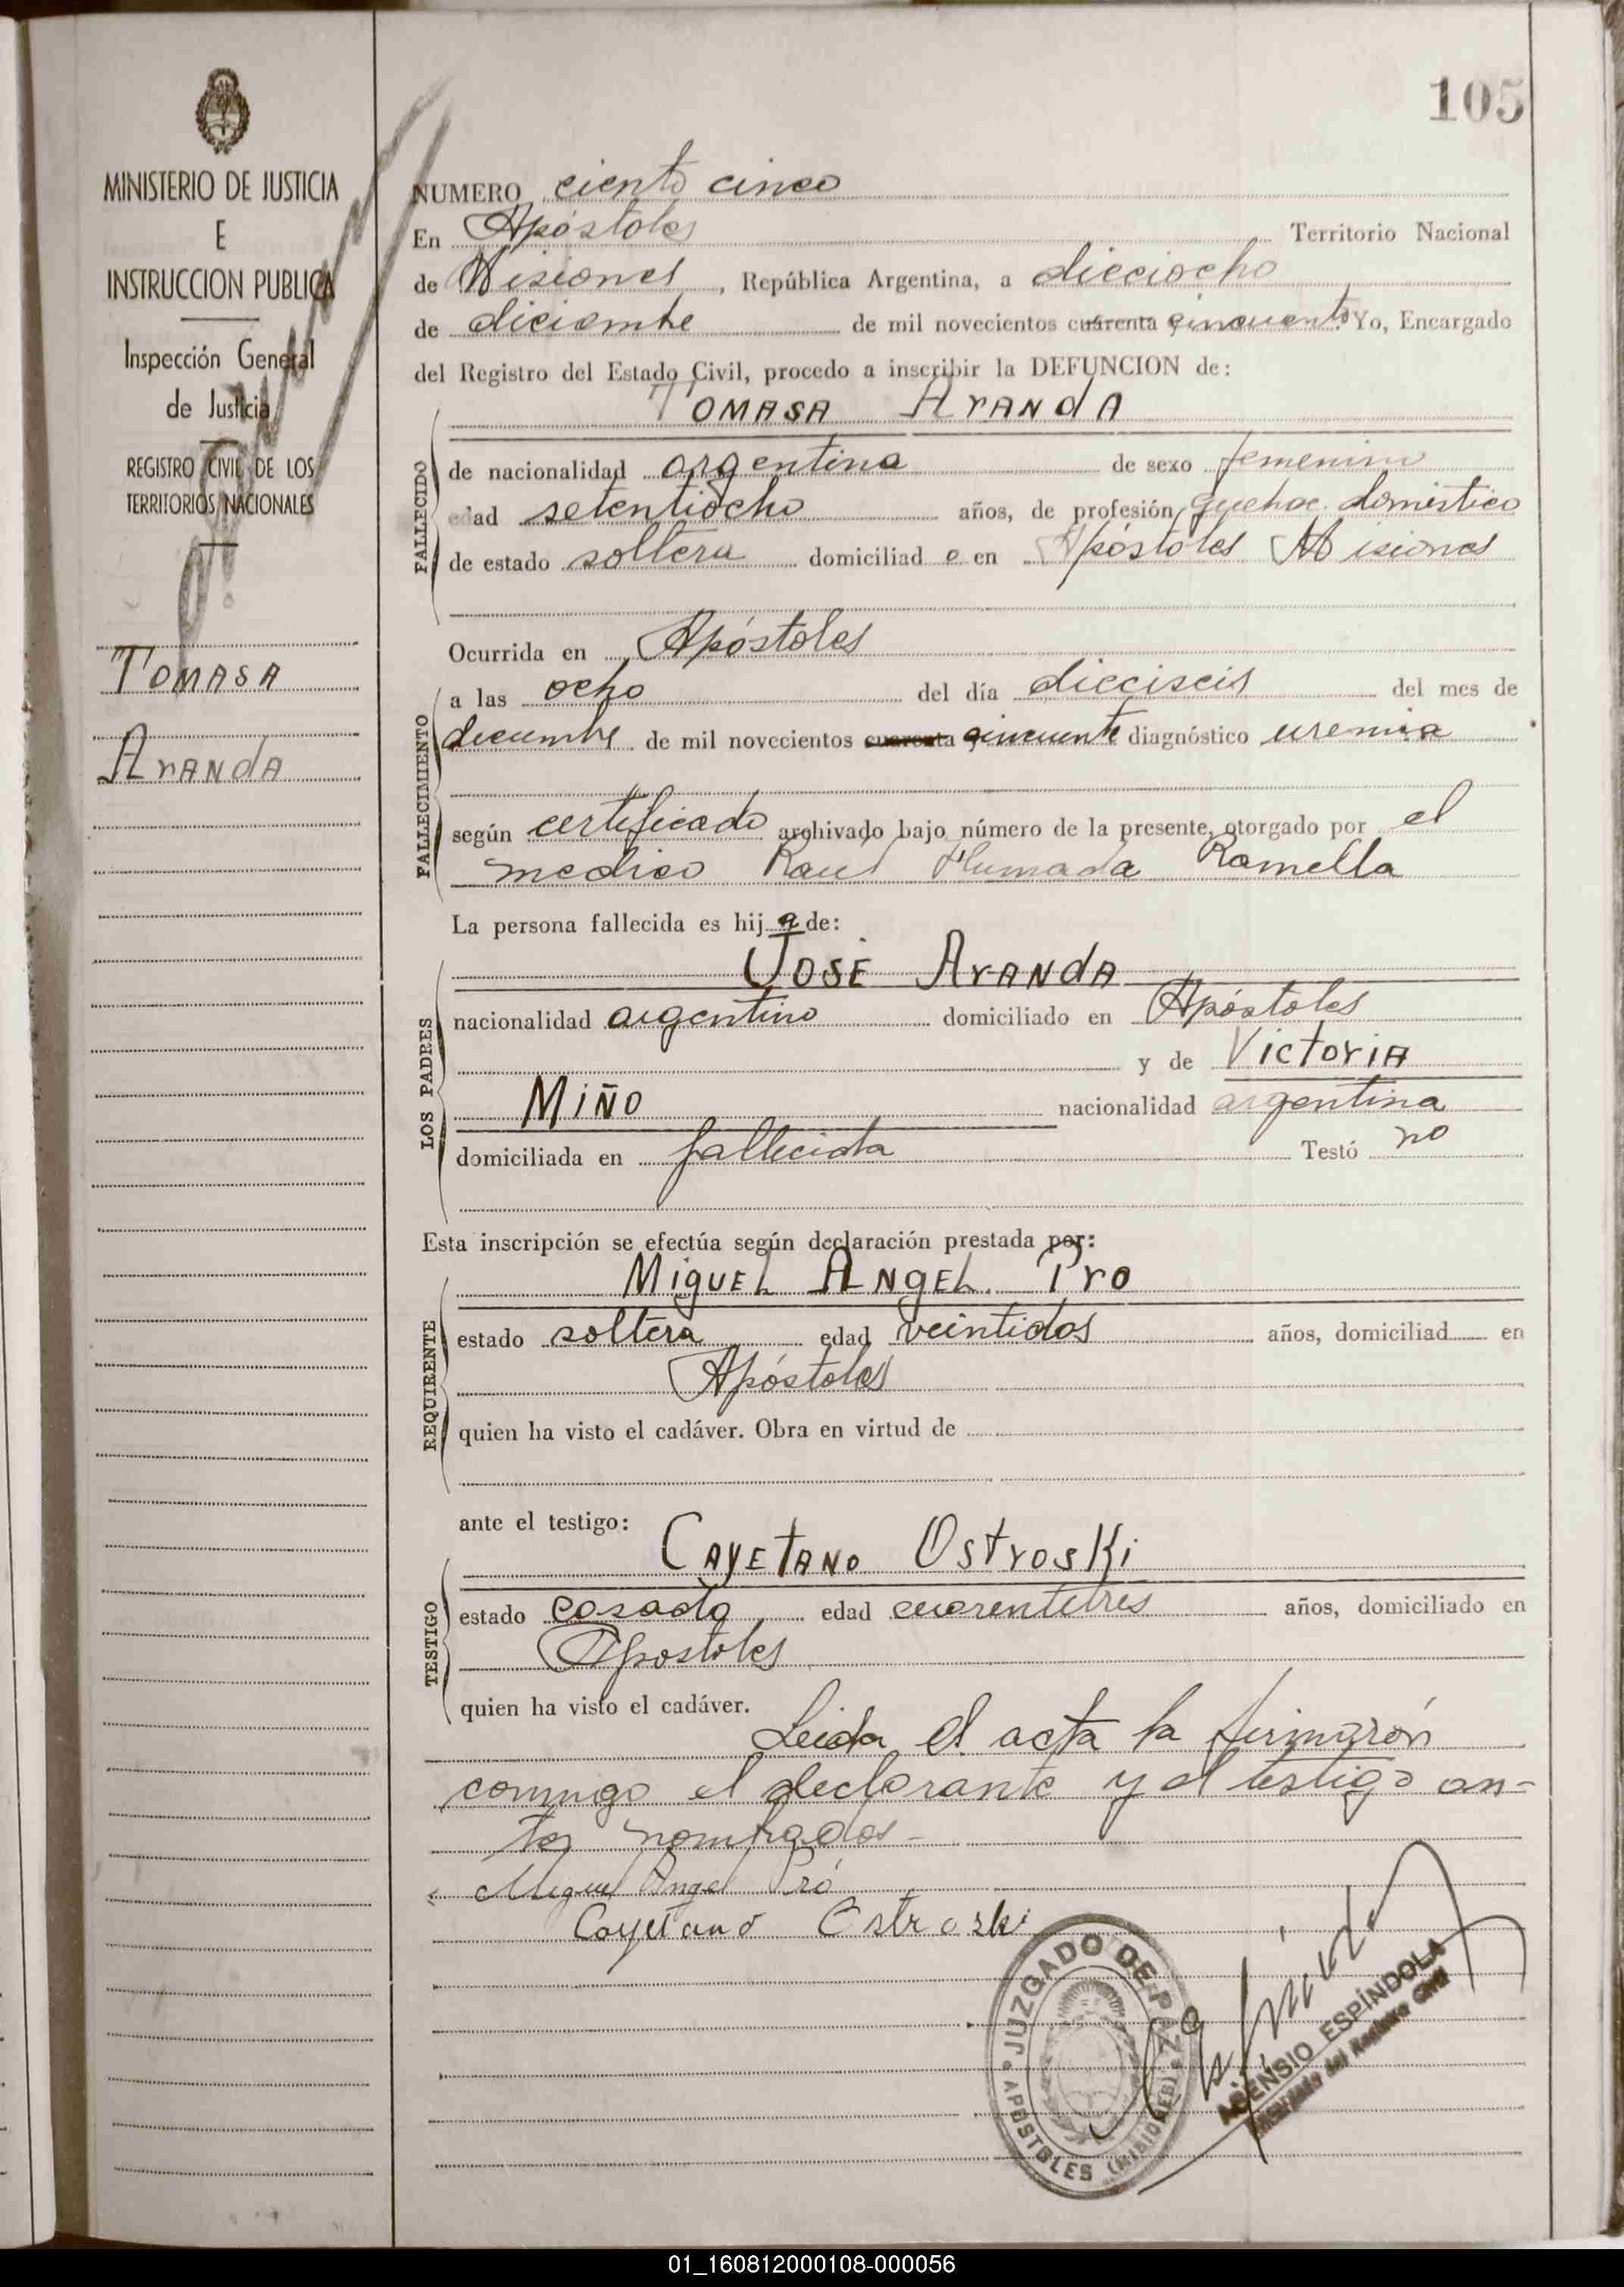 105
MINISTERIO DE JUSTICIA
E
INSTRUCCION PUBLICA
Inspección General
de Justicia
REGISTRO CIVIL DE LOS
TERRITORIOS NACIONALES
TOMASA
ArANdA
NUMERO ciento cinco
En Apóstoles Territorio Nacional
de Misiones, República Argentina, a dieciocho
de diciembre de mil novecientos cuarenta cincuenta Yo, Encargado
del Registro del Estado Civil, procedo a inscribir la DEFUNCION de:
TOMASA ArANdA
FALLECIDO
de nacionalidad argentina de sexo femenino
edad setentiocho años, de profesión quehac. doméstico
de estado soltera domiciliad a en Apóstoles Misiones
Ocurrida en Apóstoles
FALLECIMIENTO
a las ocho del día dieciseis del mes de
diciembre de mil novecientos cuarenta cincuenta diagnóstico uremia
según certificado archivado bajo número de la presente, otorgado por el
medico Raul Humada Ramella
La persona fallecida es hij a de:
LOS PADRES
JOSÉ ArANdA
nacionalidad argentino domiciliado en Apóstoles
y de VictoriA
MIÑO nacionalidad argentina
domiciliada en fallecida Testó no
Esta inscripción se efectúa según declaración prestada por:
REQUIRENTE
MiguEL ANgEL Pro
estado soltera edad veintidos años, domiciliad en
Apóstoles
quien ha visto el cadáver. Obra en virtud de
ante el testigo:
TESTIGO
CAyETANO OstrosKi
estado casado edad cuarentitres años, domiciliado en
Apostoles
quien ha visto el cadáver.
Leida el acta la firmarón
conmigo el declarante y el testigo an-
tes nombrados-
Miguel Angel Pró
Cayetano Ostroski
JUZGADO DE PAZ
APOSTOLES (MISIONES)
ASENSIO ESPÍNDOLA
Encargado del Registro Civil
01_160812000108-000056